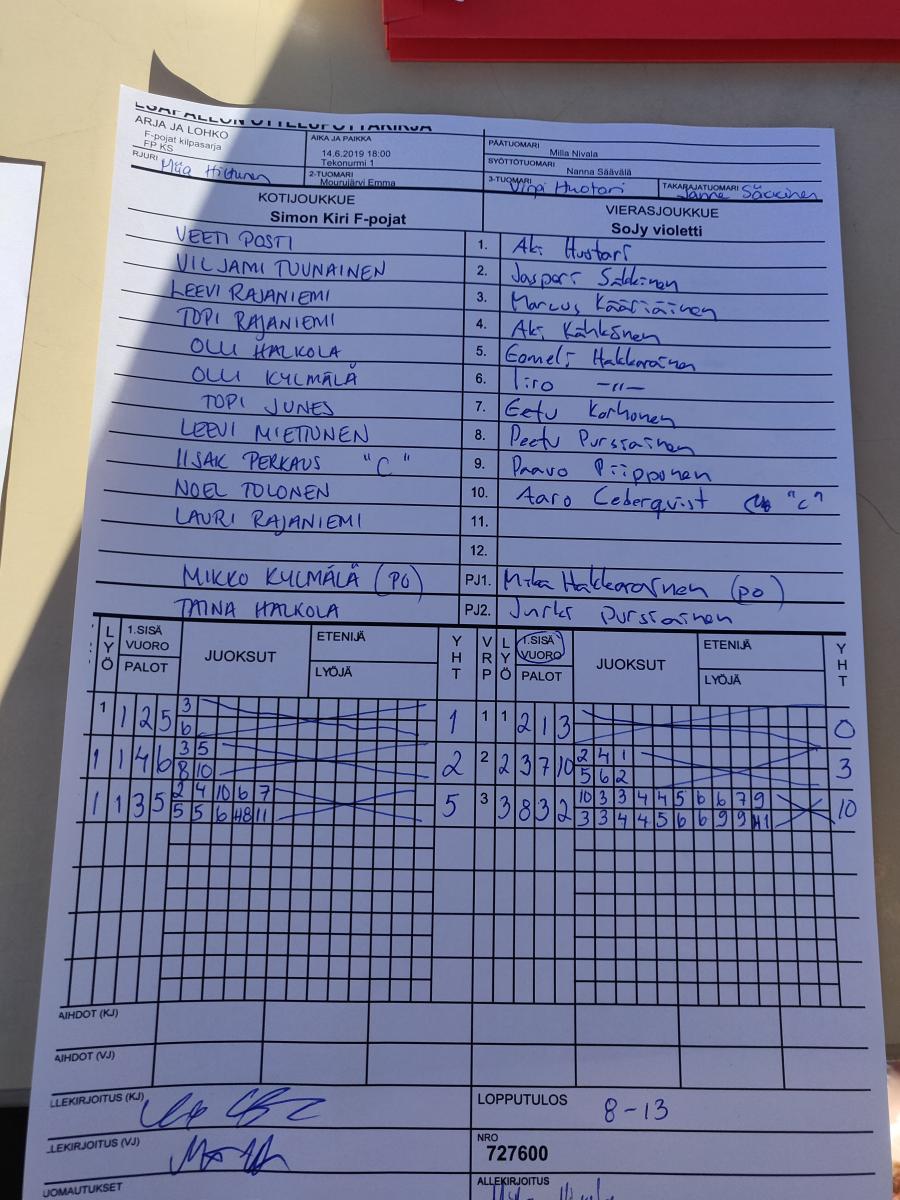 ESÄPALLON OTTELUPÖYTÄKIRJA
ARJA JA LOHKO
F-pojat kilpasarja
FP KS
AIKA JA PAIKKA
14.6.2019 18:00
Tekonurmi 1
PÄÄTUOMARI
Milla Nivala
SYÖTTÖTUOMARI
Nanna Säävälä
RJURI Miia Hiltunen
2-TUOMARI
Mourujärvi Emma
3-TUOMARI Virpi Huotari
TAKARAJATUOMARI Janne Säkkinen
KOTIJOUKKUE
Simon Kiri F-pojat
VIERASJOUKKUE
SoJy violetti
VEETI POSTI 1. Aki Huotari
VILJAMI TUUNAINEN 2. Jasperi Säkkinen
LEEVI RAJANIEMI 3. Marcus Kääriäinen
TOPI RAJANIEMI 4. Aki Kähkönen
OLLI HALKOLA 5. Eemeli Hakkarainen
OLLI KYLMÄLÄ 6. Iiro -"-
TOPI JUNES 7. Eetu Korhonen
LEEVI MIETTUNEN 8. Peetu Purssiainen
IISAK PERKAUS "C" 9. Paavo Piipponen
NOEL TOLONEN 10. Aaro Cederqvist "C"
LAURI RAJANIEMI 11.
12.
MIKKO KYLMÄLÄ (PO) PJ1. Mika Hakkarainen (PO)
TAINA HALKOLA PJ2. Jurki Purssiainen
LYÖ 1.SISÄ VUORO PALOT JUOKSUT ETENIJÄ LYÖJÄ YHT VRP LYÖ 1.SISÄ VUORO PALOT JUOKSUT ETENIJÄ LYÖJÄ YHT
1 1 2 5 3 1 1 1 2 1 3 0
6
1 1 4 6 3 5 2 2 2 3 7 10 2 4 1 3
8 10 5 6 2
1 1 3 5 2 4 10 6 7 5 3 3 8 3 2 10 3 3 4 4 5 6 6 7 9 10
5 5 6 #8 11 3 3 4 4 5 6 6 9 9 #1
AIHDOT (KJ)
AIHDOT (VJ)
LLEKIRJOITUS (KJ)
LOPPUTULOS 8-13
LLEKIRJOITUS (VJ)
NRO
727600
UOMAUTUKSET
ALLEKIRJOITUS